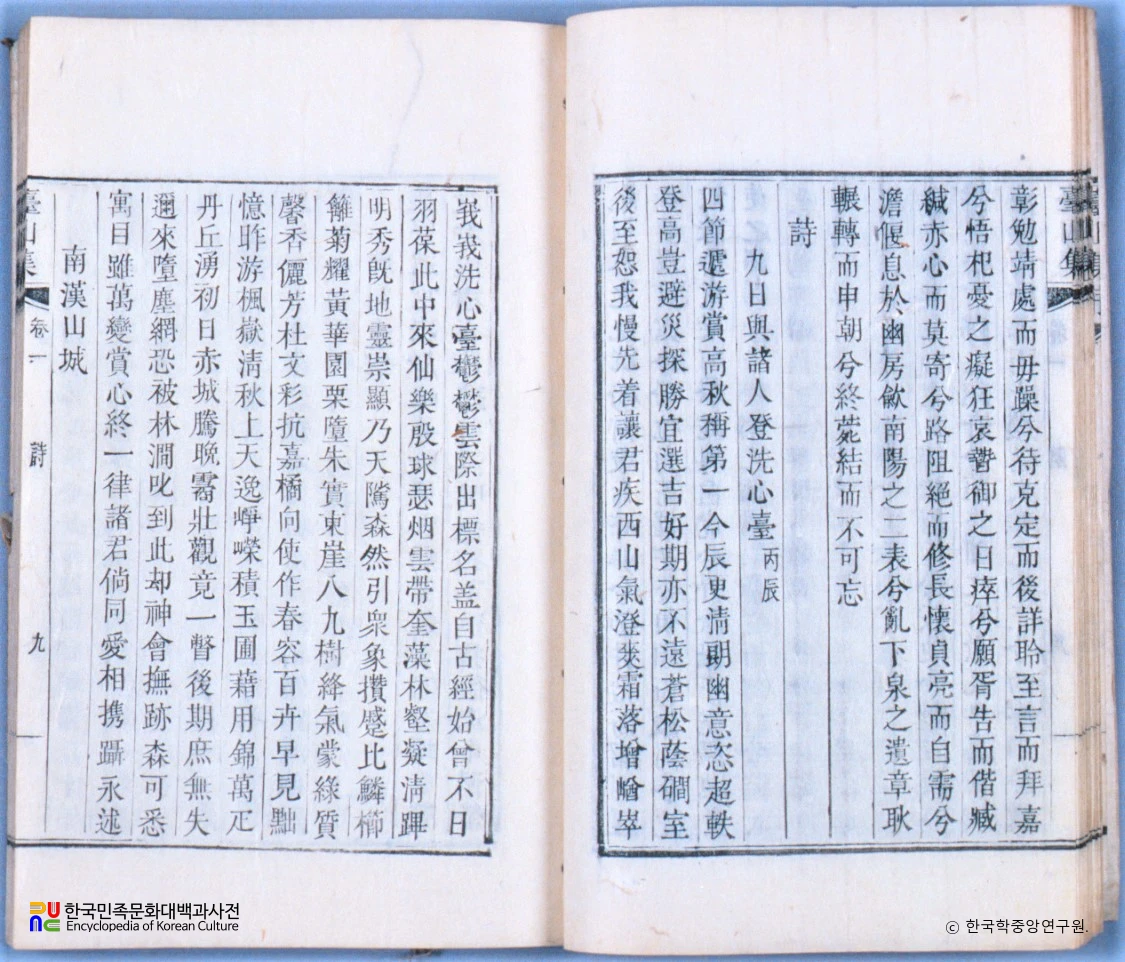 彰勉靖處而毋躁兮待克定而後詳聆至言而拜嘉
兮悟杞憂之癡狂哀暬御之日瘁兮願胥告而偕臧
緘赤心而莫寄兮路阻絕而修長懷貞亮而自需兮
澹偃息於幽房歈南陽之二表兮亂下泉之遺章耿
輾轉而申朝兮終菀結而不可忘
詩
九日與諸人登洗心臺 丙辰
四節遞游賞高秋稱第一今辰更淸朗幽意恣超軼
登高豈避災探勝宜選吉好期亦不遠蒼松蔭磵室
後至恕我慢先着讓君疾西山氣澄爽霜落增崷崒
峩峩洗心臺鬱鬱雲際出標名盖自古經始曾不日
羽葆此中來仙樂殷球瑟烟雲帶奎藻林壑凝淸蹕
明秀旣地靈崇顯乃天隲森然引衆象攢蹙比鱗櫛
籬菊耀黃華園栗墮朱實東崖八九樹絳氣蒙綠質
馨香儷芳杜文彩抗嘉橘向使作春容百卉早見黜
憶昨游楓嶽淸秋上天逸崢嶸積玉圃藉用錦萬疋
丹丘湧初日赤城騰晚霱壯觀竟一瞥後期庶無失
邇來墮塵網恐被林澗叱到此却神會撫跡森可悉
寓目雖萬變賞心終一律諸君倘同愛相携躡永述
南漢山城
臺山集 卷一 詩 九
臺山集
한국민족문화대백과사전
Encyclopedia of Korean Culture
© 한국학중앙연구원.